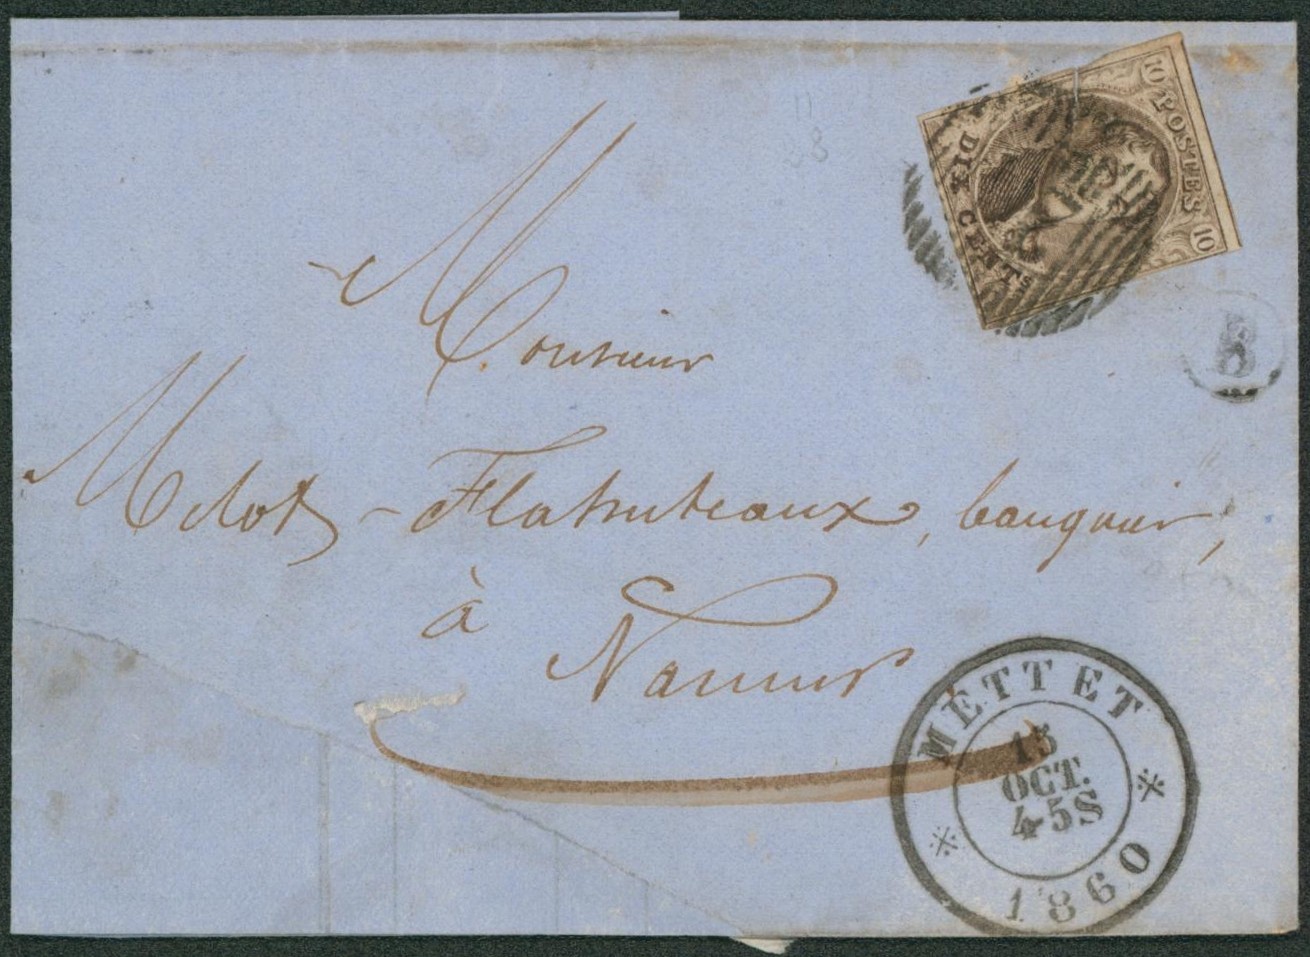 10 POSTES 10
DIX CENTS
B
Monsieur
Melot - Flahuteaux, banquier,
à
Namur
METTET
15
OCT.
4-5S
1860